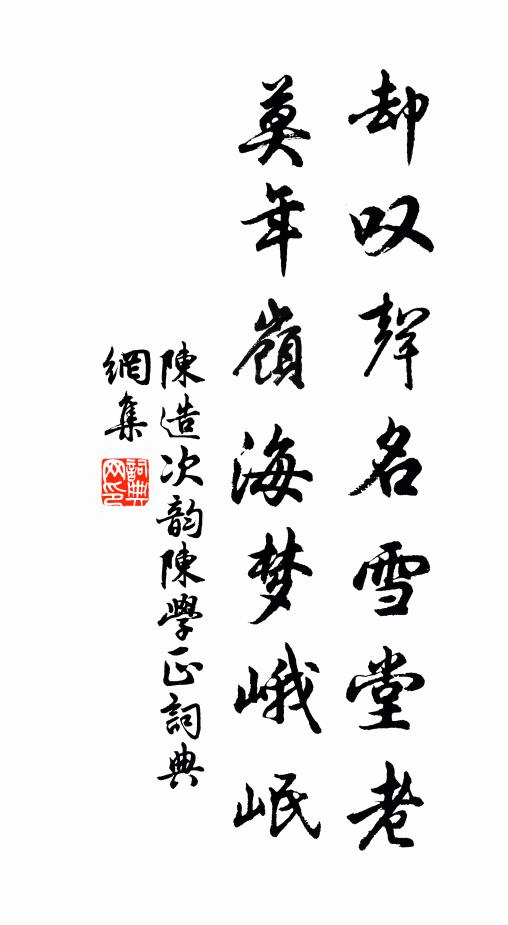 却叹聲名雪堂老
莫年嶺海梦峨岷
陳造次韵陳學正詞典
網集
詞典網印